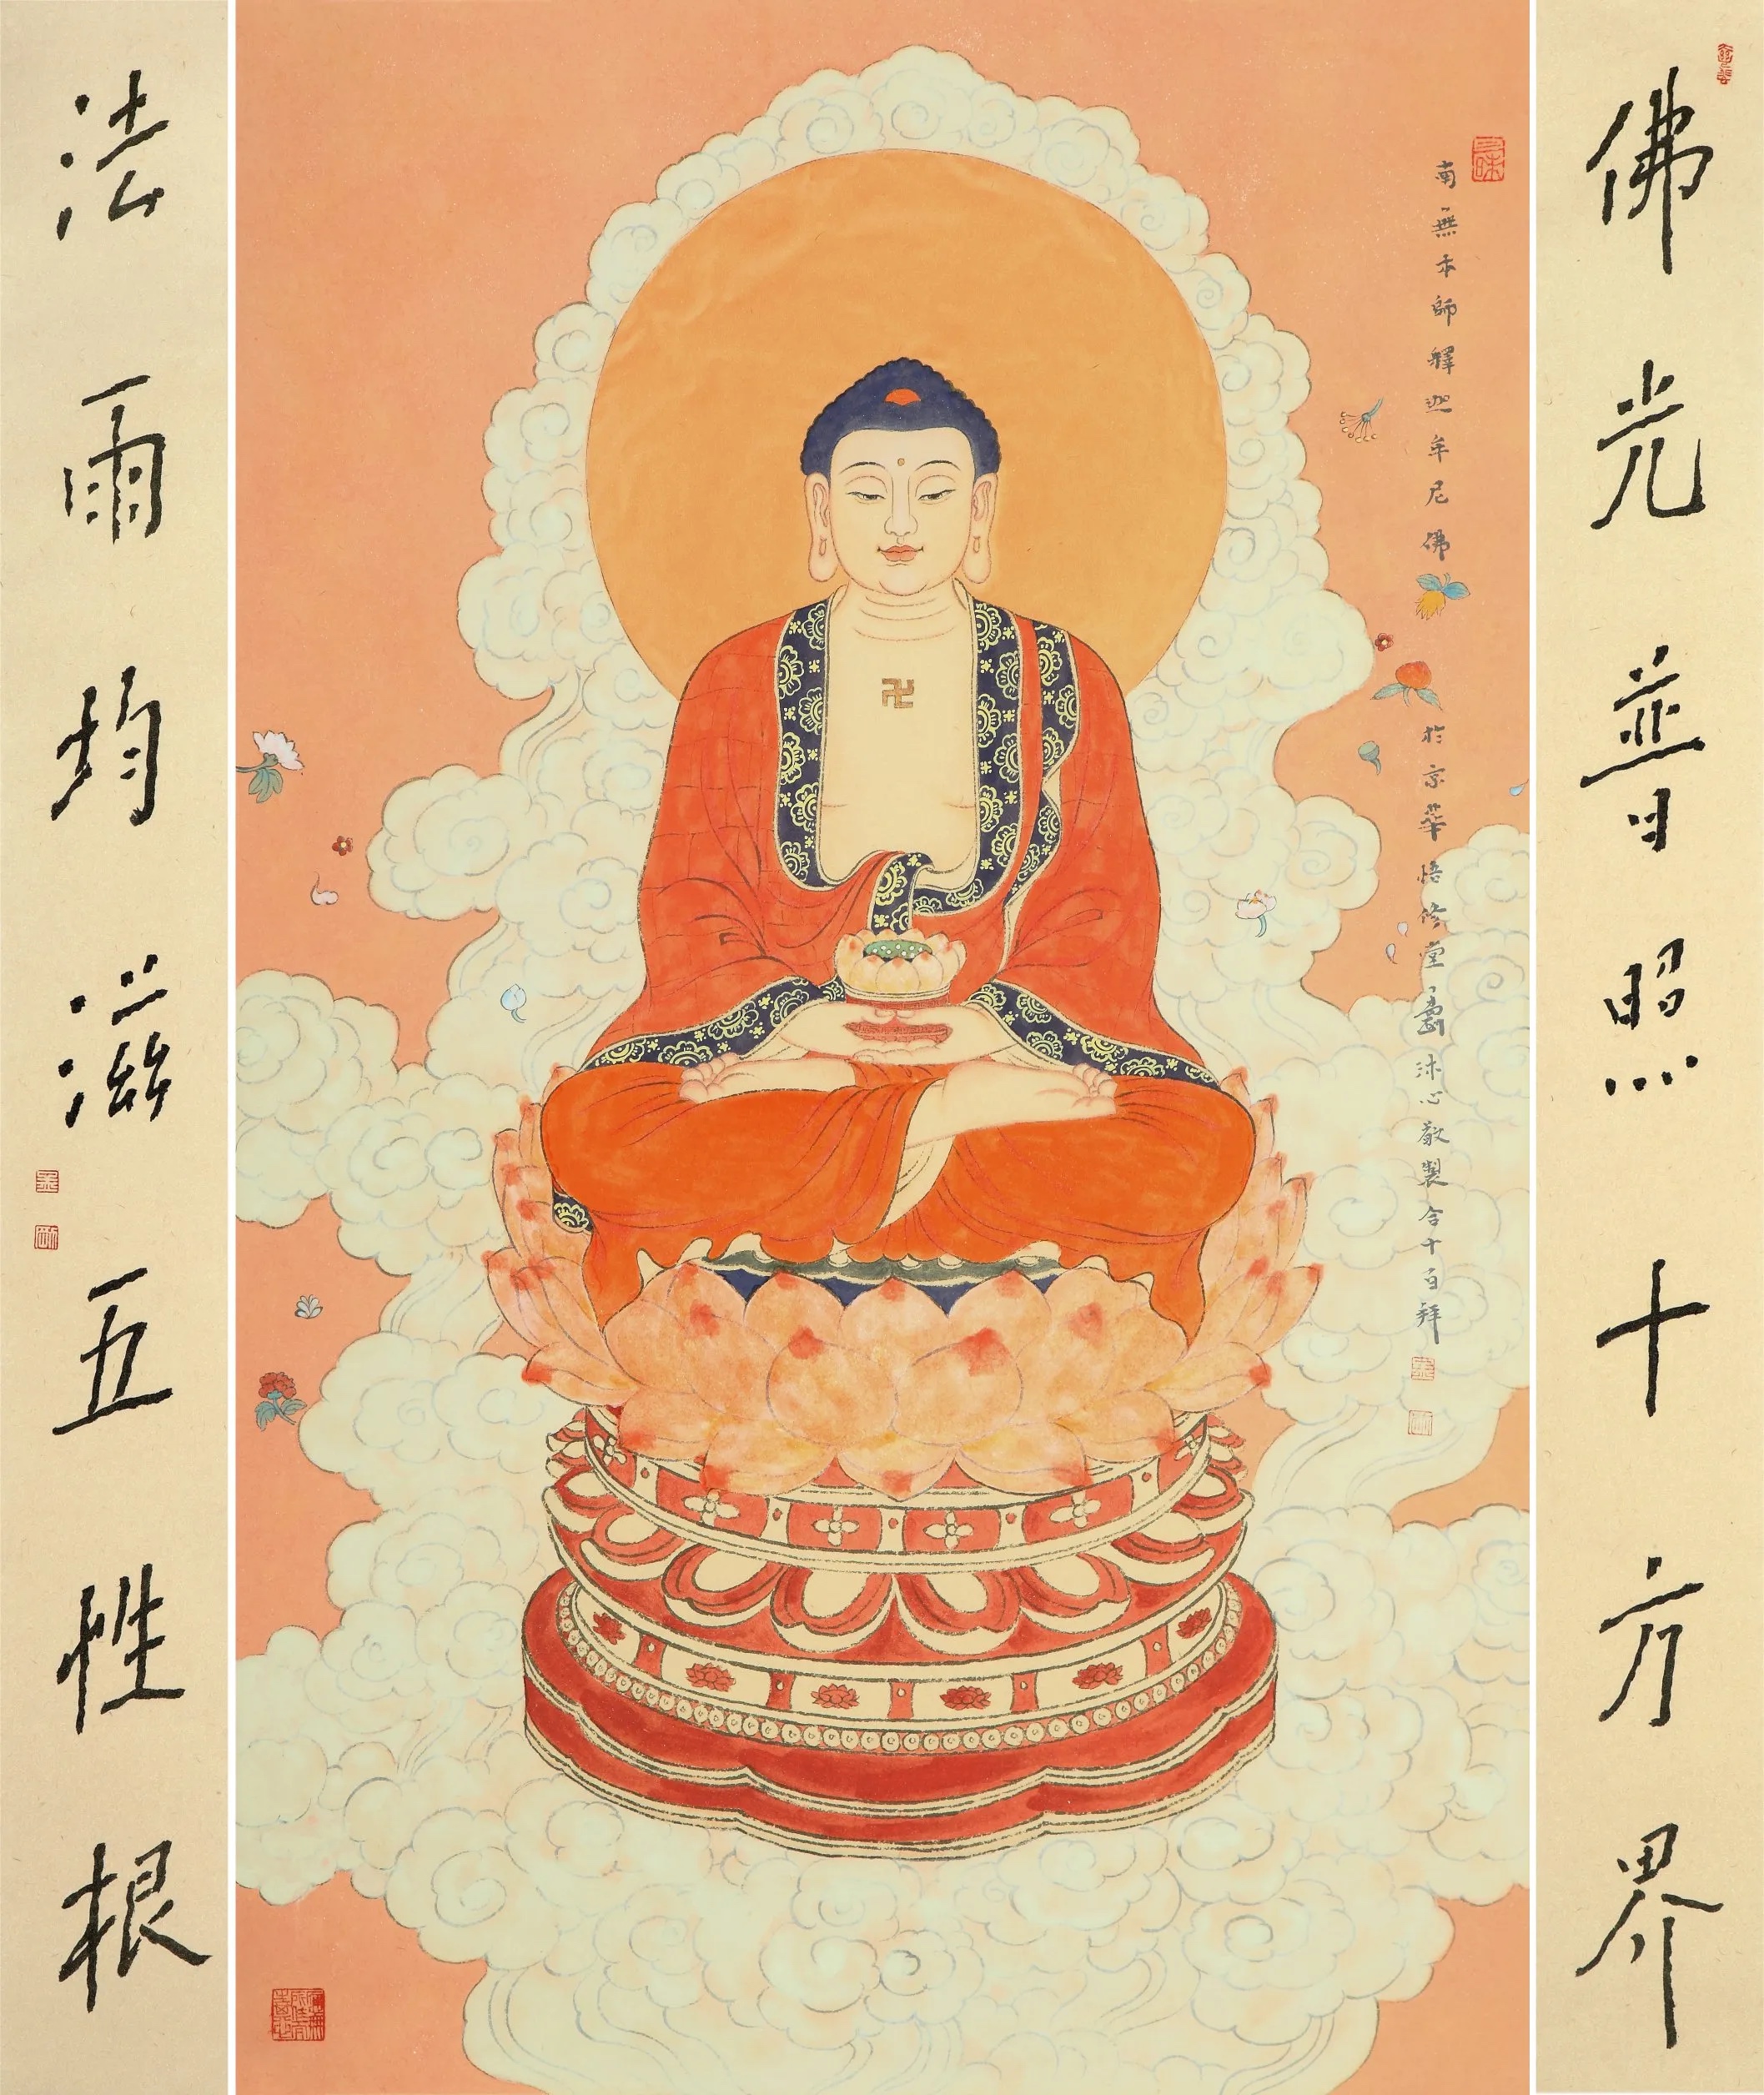 佛光普照十方界
南無本師釋迦牟尼佛
於京華悟修堂
沐心敬製合十百拜
法雨均滋五性根